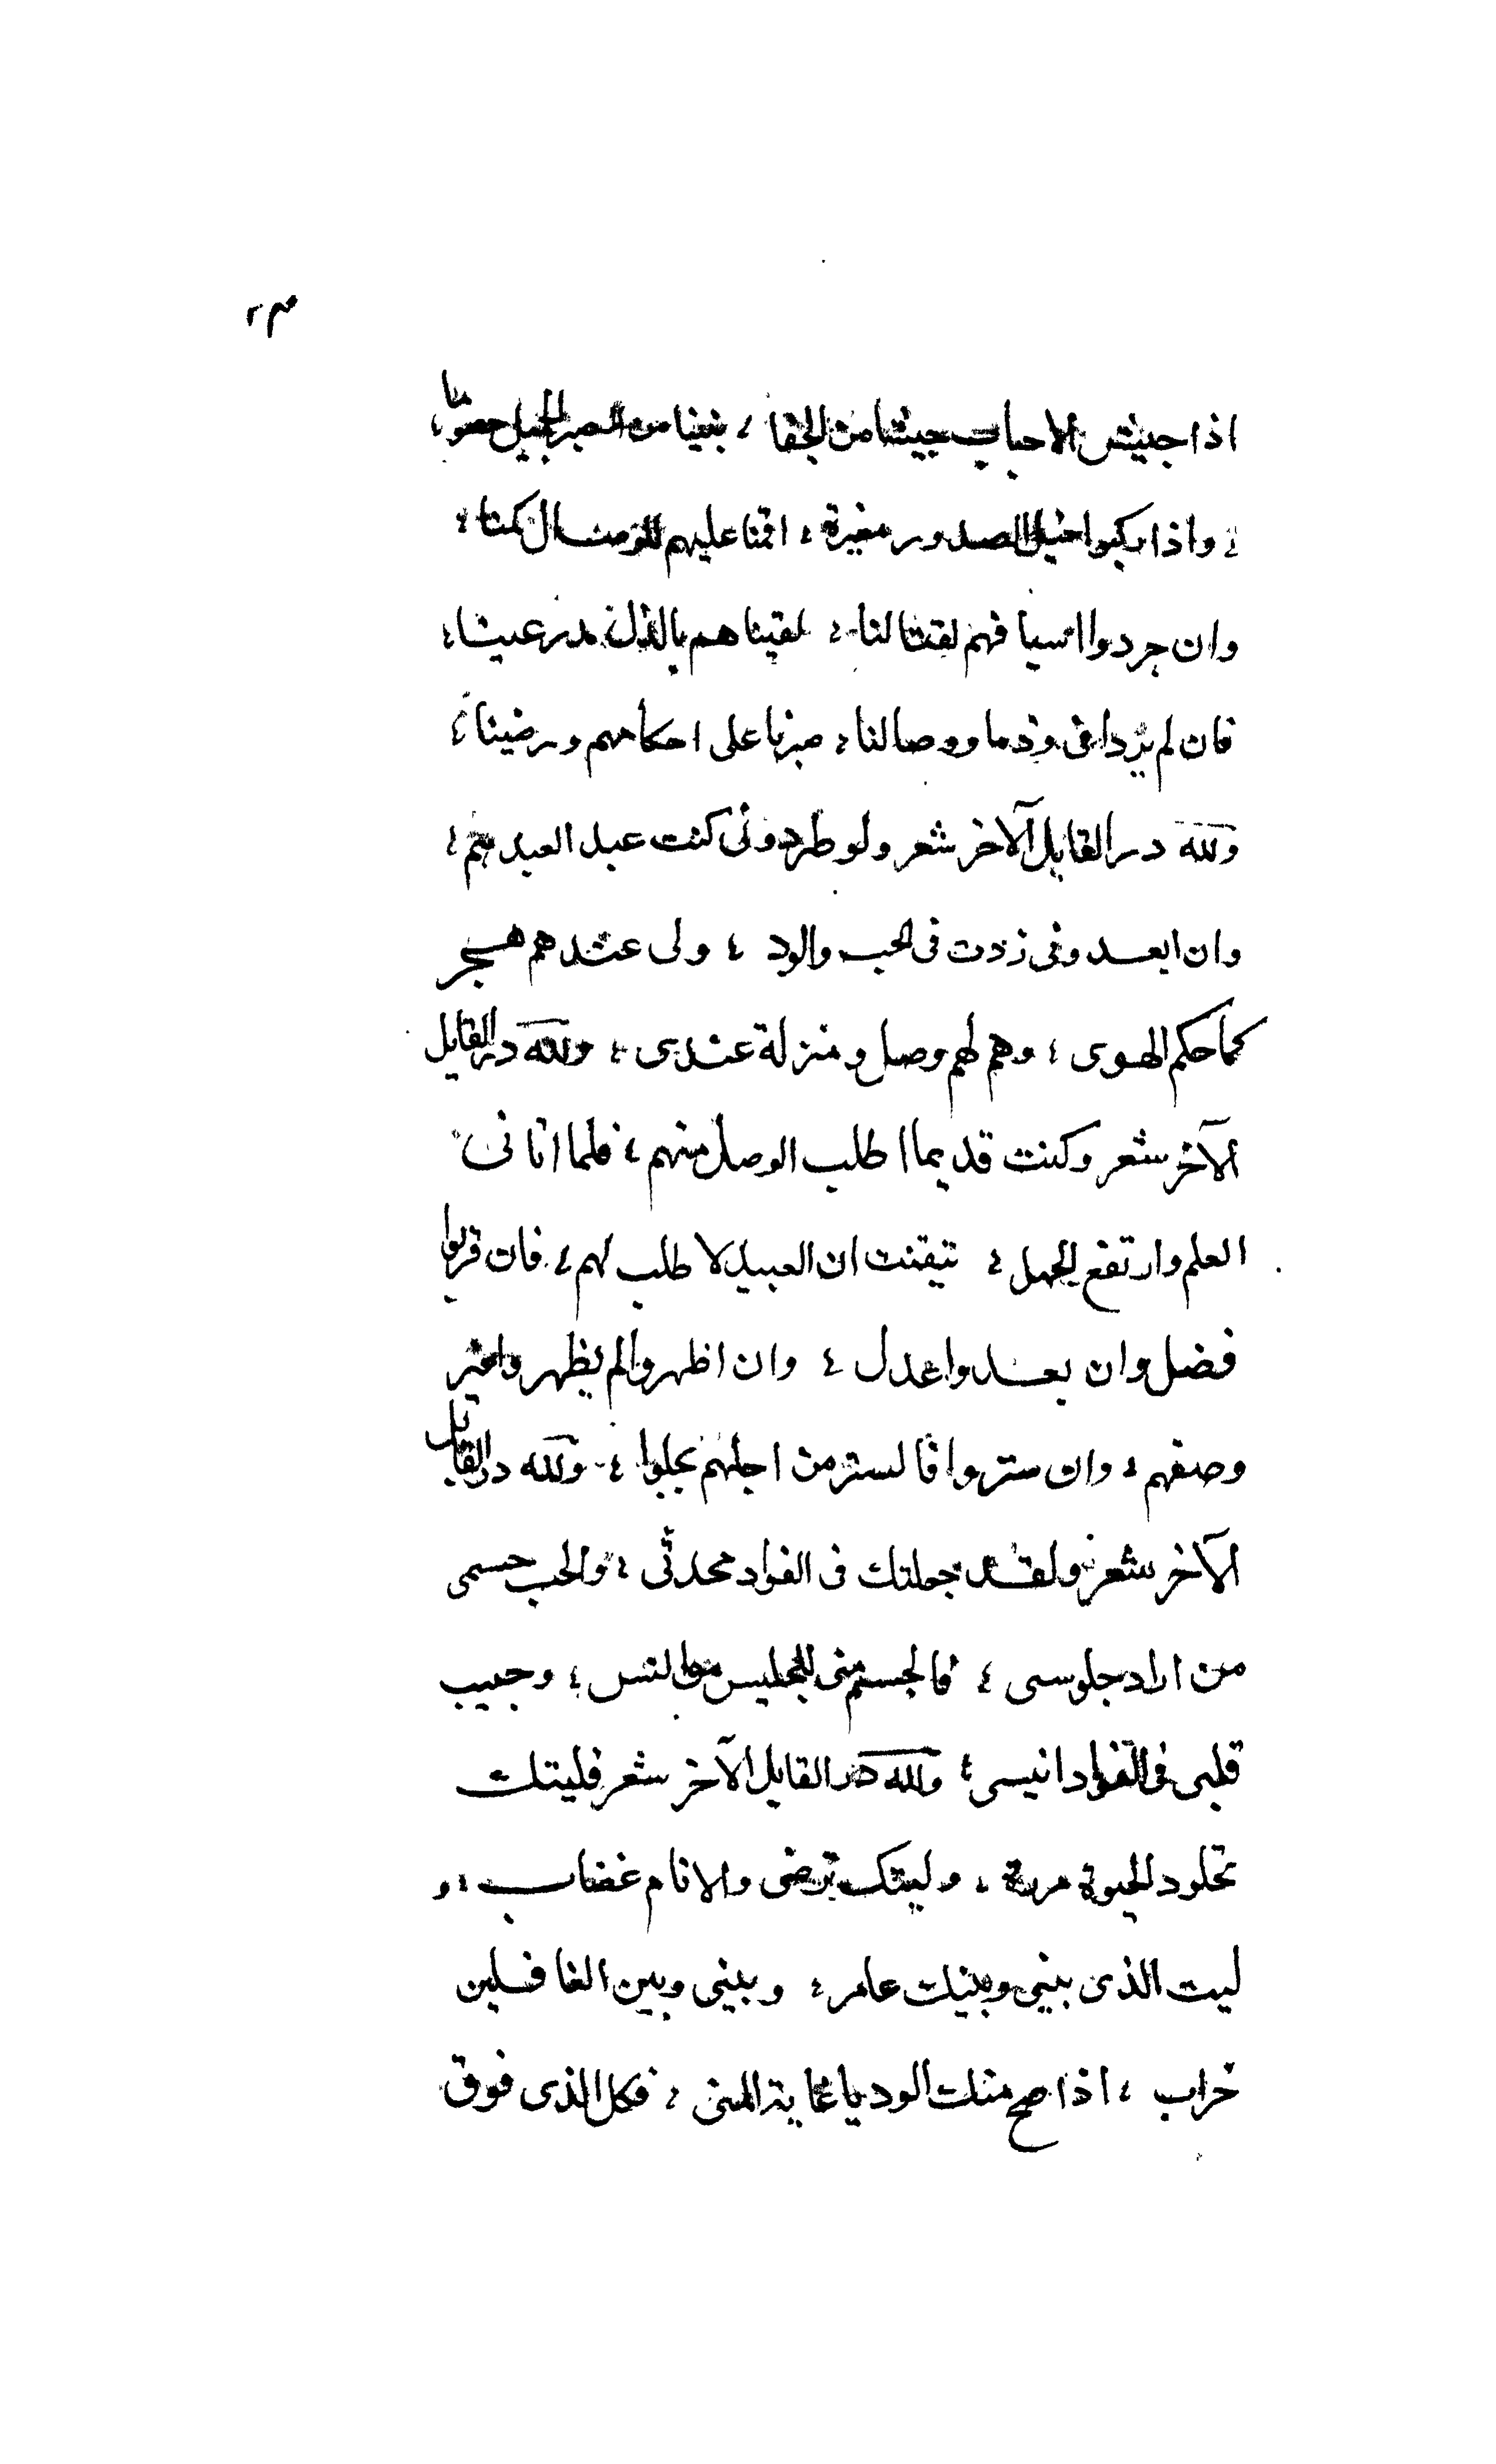 اذا جيش الاحباب جيشا من الجفا ، بنينا من الصبر الجميل حصونا ،
، واذا ركبوا خيل الصدور مغيرة ، اقمنا عليهم للوصال كمنا ،
وان جردوا اسيافهم لقتالنا ، لقيناهم بالذل مدرعينا ،
فان لم يردا فى وصالنا ، صبرنا على احكامهم ورضينا ،
ولله در القايل الآخر شعر ولو طردونى كنت عبد العبدهم ،
وان ابعدونى زدت فى الحب والود ، ولى عندهم هجر
كما حكم الهوى ، وهم لهم وصل ومنزلة عندى ، ولله در القايل
الآخر شعر وكنت قديما اطلب الوصل منهم ، فلما اتانى
العلم وارتفع الجهل ، تيقنت ان العبيد لا طلب لهم ، فان قربوا
فضل وان بعدوا عدل ، وان اظهروا لم يظهروا غير
وصفهم ، وان ستروا فالستر من اجلهم يحلوا ، ولله در القايل
الآخر شعر ولقد جعلتك فى الفواد محدثى ، والحب جسمى
من اراد جلوسى ، فالجسم منى للجليس موالنس ، وحبيب
قلبى فى الفواد انيسى ، ولله در القايل الآخر شعر فليتك
تحلو والحيوة مرة ، وليتك ترضى والانام غضاب ، و
ليت الذى بينى وبينك عامر ، وبينى وبين الغافلين
خراب ، اذا صح منك الود يا غاية المنى ، فكل الذى فوق